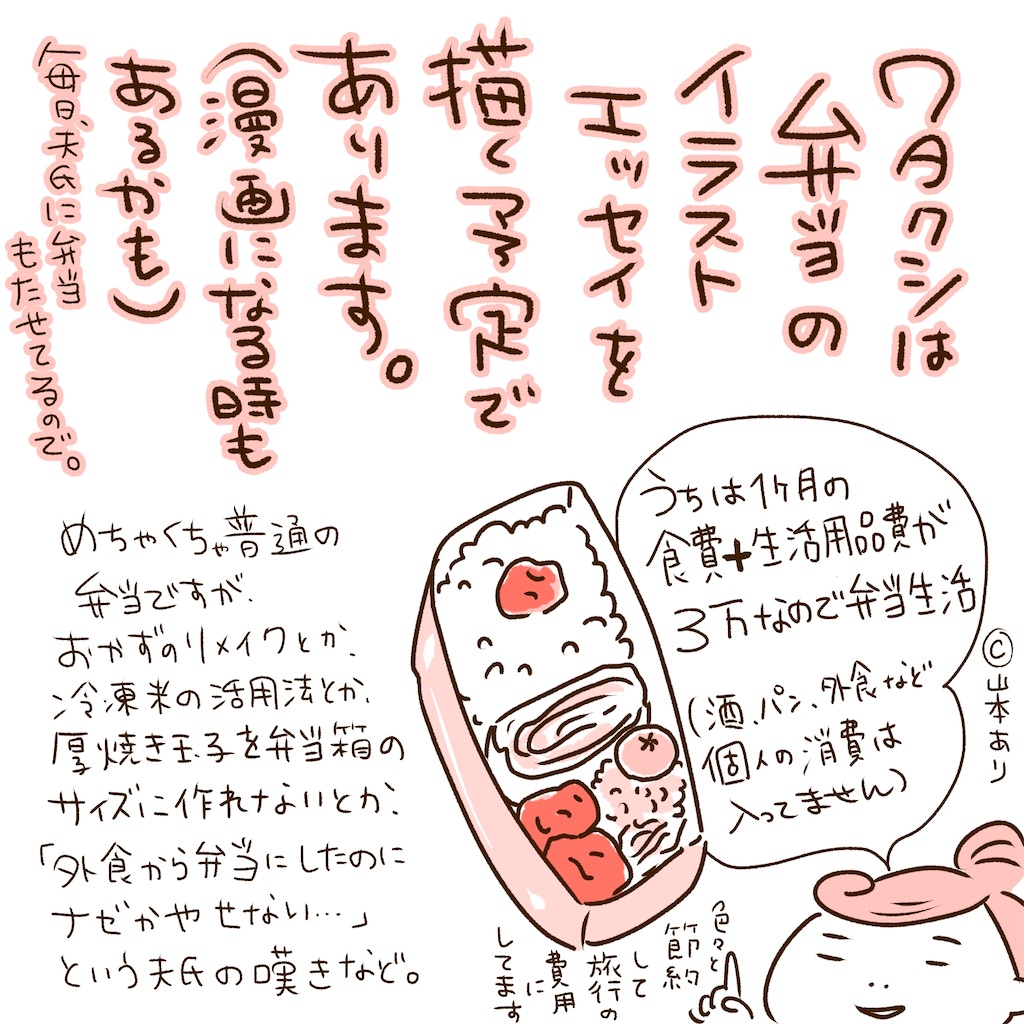 ワタクシは
弁当の
イラスト
エッセイを
描く予定で
あります。
（漫画になる時も
あるかも）
毎日、夫氏に弁当
もたせてるので。
うちは1ヶ月の
食費+生活用品費が
3万なので弁当生活
（酒、パン、外食など
個人の消費は
入ってません）
©山本あり
めちゃくちゃ普通の
弁当ですが、
おかずのリメイクとか、
冷凍米の活用法とか、
厚焼き玉子を弁当箱の
サイズに作れないとか、
「外食から弁当にしたのに
ナゼかやせない…」
という夫氏の嘆きなど。
色々と
節約
して
旅行の
費用
に
してます